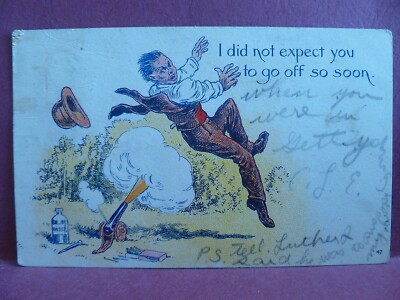 I did not expect you
to go off so soon.
when you
were in
Gettys
L. E.
P.S. Tell Luther I
said he was a
47